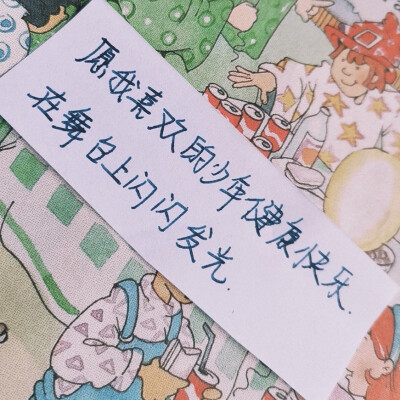 愿我喜欢的少年健康快乐.
在舞台上闪闪发光.